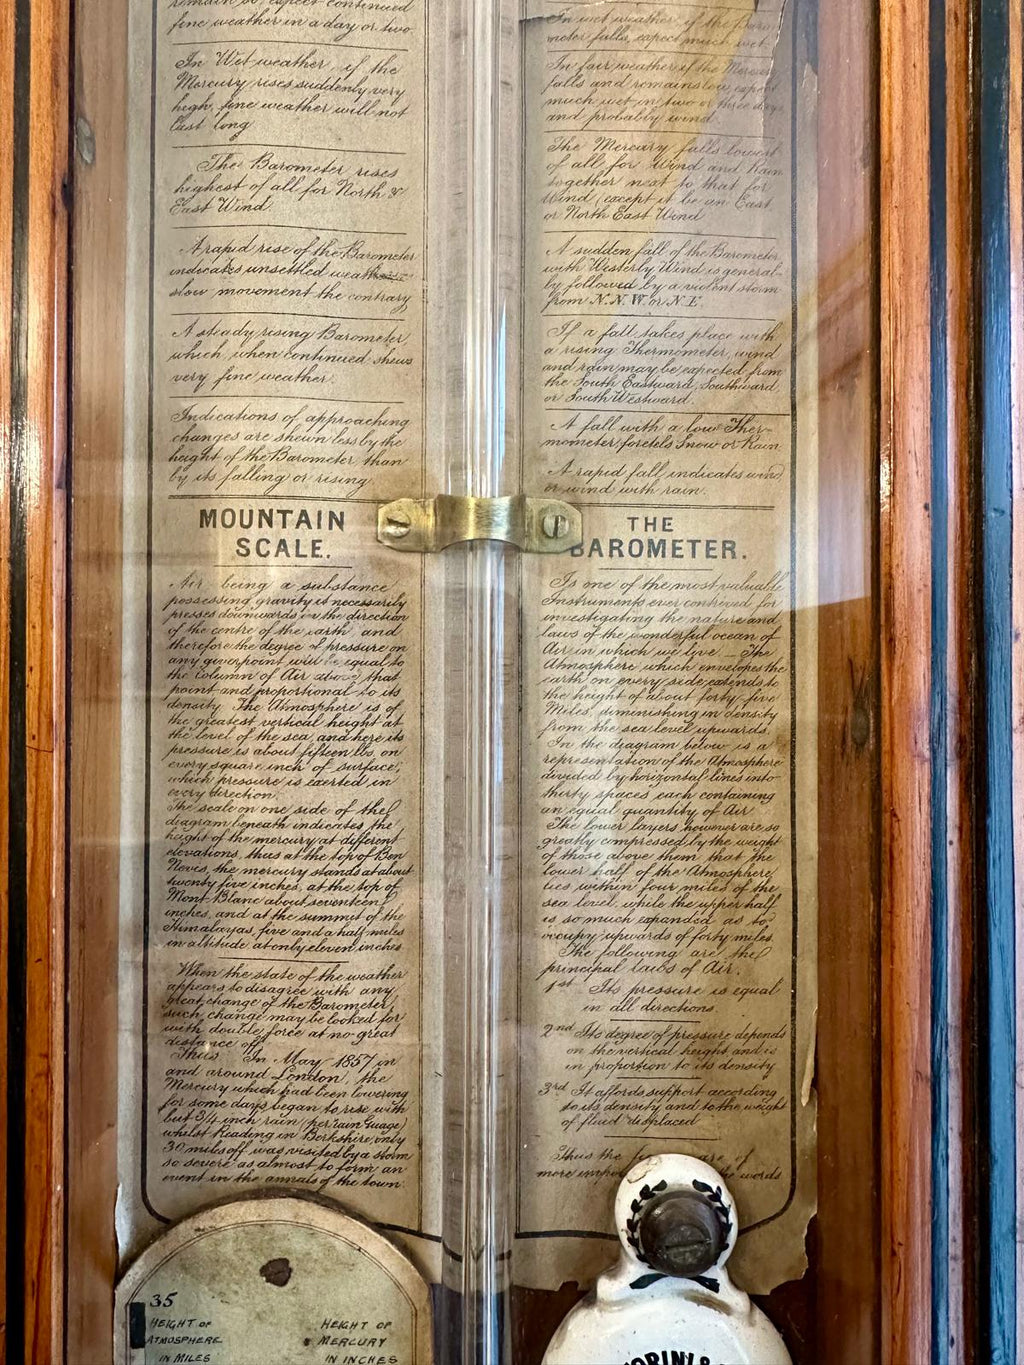 remain so, expect continued
fine weather in a day or two
In Wet weather, if the
Mercury rises suddenly very
high, fine weather will not
last long
The Barometer rises
highest of all for North &
East Wind.
A rapid rise of the Barometer
indicates unsettled weather
slow movement the contrary
A steady rising Barometer,
which, when continued shews
very fine weather.
Indications of approaching
changes are shewn less by the
height of the Barometer, than
by its falling or rising
MOUNTAIN
SCALE.
Air being a substance
possessing gravity it necessarily
presses downwards in the direction
of the centre of the earth, and
therefore the degree of pressure on
any given point will be equal to
the Column of Air above that
point and proportional to its
density. The Atmosphere is of
the greatest vertical height at
the level of the sea, and here its
pressure is about fifteen lbs. on
every square inch of surface;
which pressure is exerted in
every direction.
The scale on one side of the
diagram beneath indicates the
height of the mercury at different
elevations, thus at the top of Ben
Nevis, the mercury stands at about
twenty five inches, at the top of
Mont Blanc about seventeen
inches, and at the summit of the
Himalayas, five and a half miles
in altitude at only eleven inches
When the state of the weather
appears to disagree with any
great change of the Barometer,
such change may be looked for
with double force at no great
distance off.
Thus In May 1857 in
and around London, the
Mercury which had been lowering
for some days began to rise with
but 3/4 inch rain (per rain Guage)
whilst Reading in Berkshire, only
30 miles off was visited by a storm
so severe as almost to form an
event in the annals of the town.
In wet weather, if the Baro
meter falls, expect much wet.
In fair weather, if the Mercury
falls and remains low, expect
much wet in two or three days
and probably wind.
The Mercury falls lowest
of all for Wind and Rain
together next to that for
Wind, (except it be an East
or North East Wind
A sudden fall of the Barometer
with Westerly Wind is general-
ly followed by a violent storm
from N.N.W. or N.E.
If a fall takes place with
a rising Thermometer, wind
and rain may be expected from
the South Eastward, Southward
or South Westward.
A fall with a low Ther-
mometer foretels Snow or Rain
A rapid fall indicates wind
or wind with rain.
THE
BAROMETER.
Is one of the most valuable
Instruments ever contrived for
investigating the nature and
laws of the wonderful ocean of
Air in which we live _ The
Atmosphere which envelopes the
earth on every side, extends to
the height of about forty five
Miles, diminishing in density
from the sea level upwards.
In the diagram below is a
representation of the Atmosphere
divided by horizontal lines into
thirty spaces each containing
an equal quantity of Air
The lower layers, however are so
greatly compressed by the weight
of those above them that the
lower half of the Atmosphere,
lies within four miles of the
sea level, while the upper half
is so much expanded as to
occupy upwards of forty miles.
The following are the
principal laws of Air.
1st Its pressure is equal
in all directions
2nd Its degree of pressure depends
on the vertical height and is
in proportion to its density
3rd It affords support according
to its density and to the weight
of fluid displaced
Thus the are of
more words
35
HEIGHT OF
ATMOSPHERE
IN MILES
HEIGHT OF
MERCURY
IN INCHES